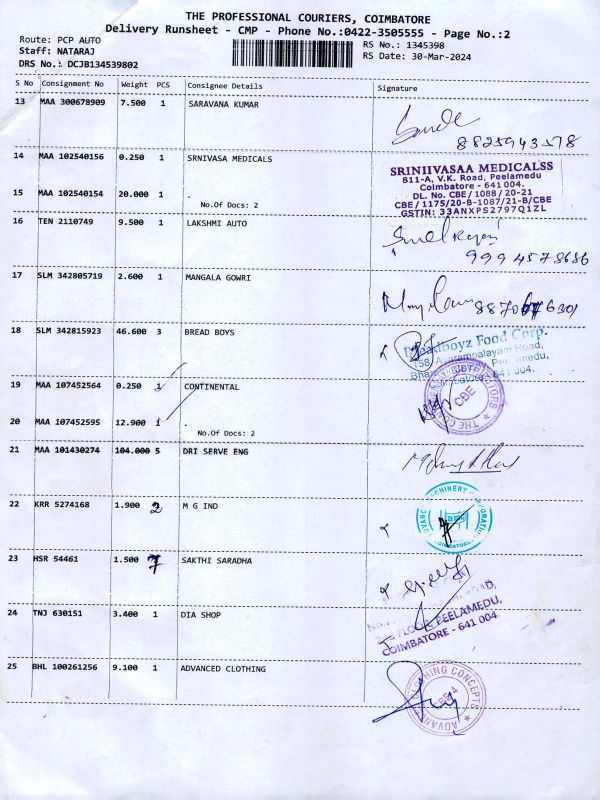 THE PROFESSIONAL COURIERS, COIMBATORE
Delivery Runsheet - CMP - Phone No.:0422-3505555 - Page No.:2
Route: PCP AUTO
Staff: NATARAJ
DRS No.: DCJB134539802
RS No.: 1345398
RS Date: 30-Mar-2024
S No Consignment No Weight PCS Consignee Details Signature
13 MAA 300678909 7.500 1 SARAVANA KUMAR
8825943578
14 MAA 102540156 0.250 1 SRNIVASA MEDICALS
15 MAA 102540154 20.000 1 .
No.Of Docs: 2
SRINIIVASAA MEDICALSS
811-A, V.K. Road, Peelamedu
Coimbatore - 641 004.
DL. No. CBE / 1088 / 20-21
CBE / 1175/20-B-1087/21-B/CBE
GSTIN: 33ANXPS2797Q1ZL
16 TEN 2110749 9.500 1 LAKSHMI AUTO
9994578686
17 SLM 342805719 2.600 1 MANGALA GOWRI
18 SLM 342815923 46.600 3 BREAD BOYS
Breadboyz Food Corp.
19 MAA 107452564 0.250 1 CONTINENTAL
20 MAA 107452595 12.900 1 .
No.Of Docs: 2
CBE
21 MAA 101430274 104.000 5 DRI SERVE ENG
22 KRR 5274168 1.900 2 M G IND
23 HSR 54461 1.500 7 SAKTHI SARADHA
24 TNJ 630151 3.400 1 DIA SHOP
FLOOR, PEELAMEDU,
COIMBATORE - 641 004.
25 BHL 100261256 9.100 1 ADVANCED CLOTHING
CLOTHING CONCEPTS